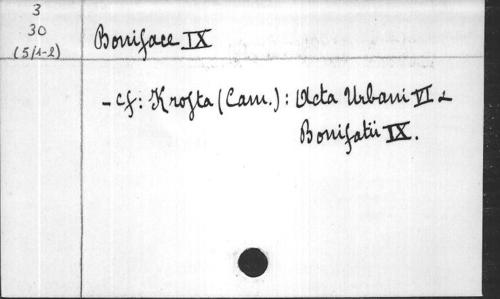 3
30
(5/1-2)
Boniface IX
- cf: Krofta (Cam.): Acta Urbani VI &
Bonifatii IX.